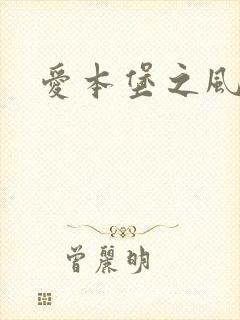 愛本堡之風
曾麗明